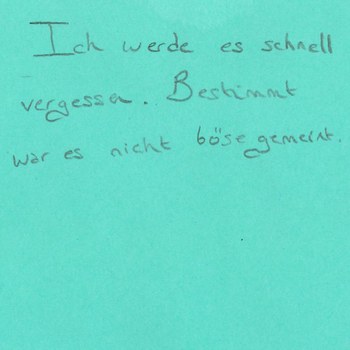 Ich werde es schnell
vergessen. Bestimmt
war es nicht böse gemeint.